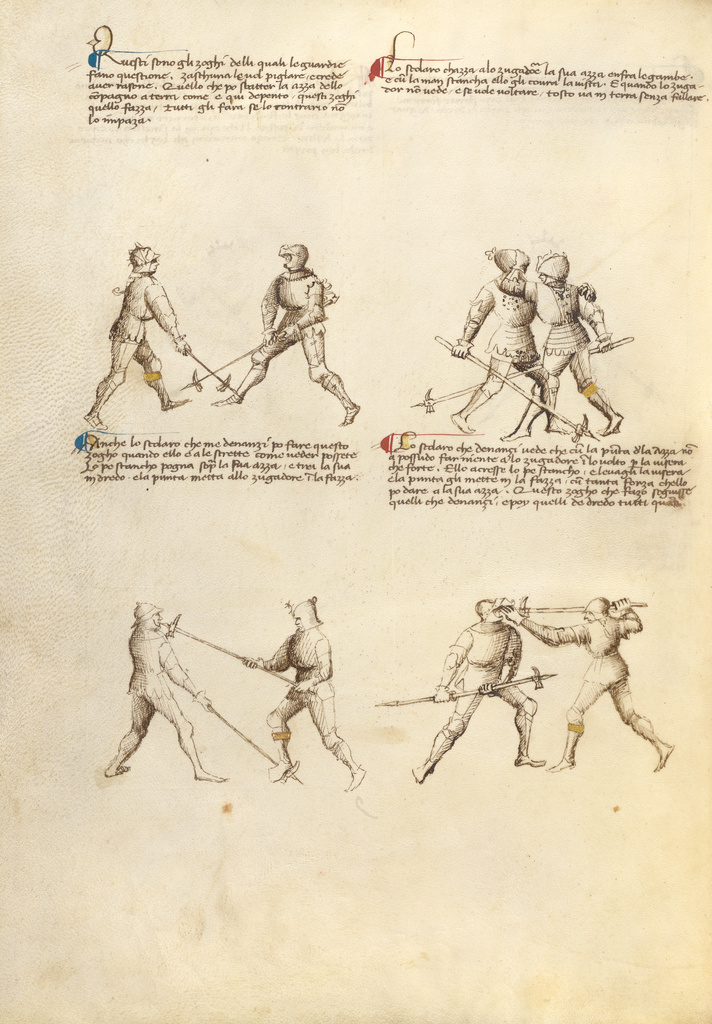 Questi sono gli zoghi delli quali le guardie
fano questione. zaschuna le vol pigliare, e crede
aver rasone. Quello che po sbatter la azza dello
cōpagno a terra come e qui depento. questi zoghi
quello fazza, Tutti gli fara se lo contrario nō
lo impaza.
Lo scolaro chazza a lo zugadōr la sua azza enfra le gambe.
e cū la man stancha ello gli covra la vista. E quando lo zuga-
dor nō vede, e se vole voltare, tosto va in terra senza fallare.
Anche lo scolaro che me denanzi po fare questo
zogho quando ello e a le strette come veder possete
Lo pe stancho pogna sop̄ la sua azza, e tra la sua
indredo. e la punta metta allo zugadore ī la fazza.
Lo scolaro che denanzi vede che cū la pūta dla azza nō
a possudo far niente a lo zugadore ī lo volto p la visera
che forte. Ello acresse lo pe stancho, e levagli la visera
e la punta gli mette in la fazza, cū tanta forza chello
po dare a la sua azza. Questo zogho che fazo seguisse
quelli che denanzi, e poy quelli de dredo tutti